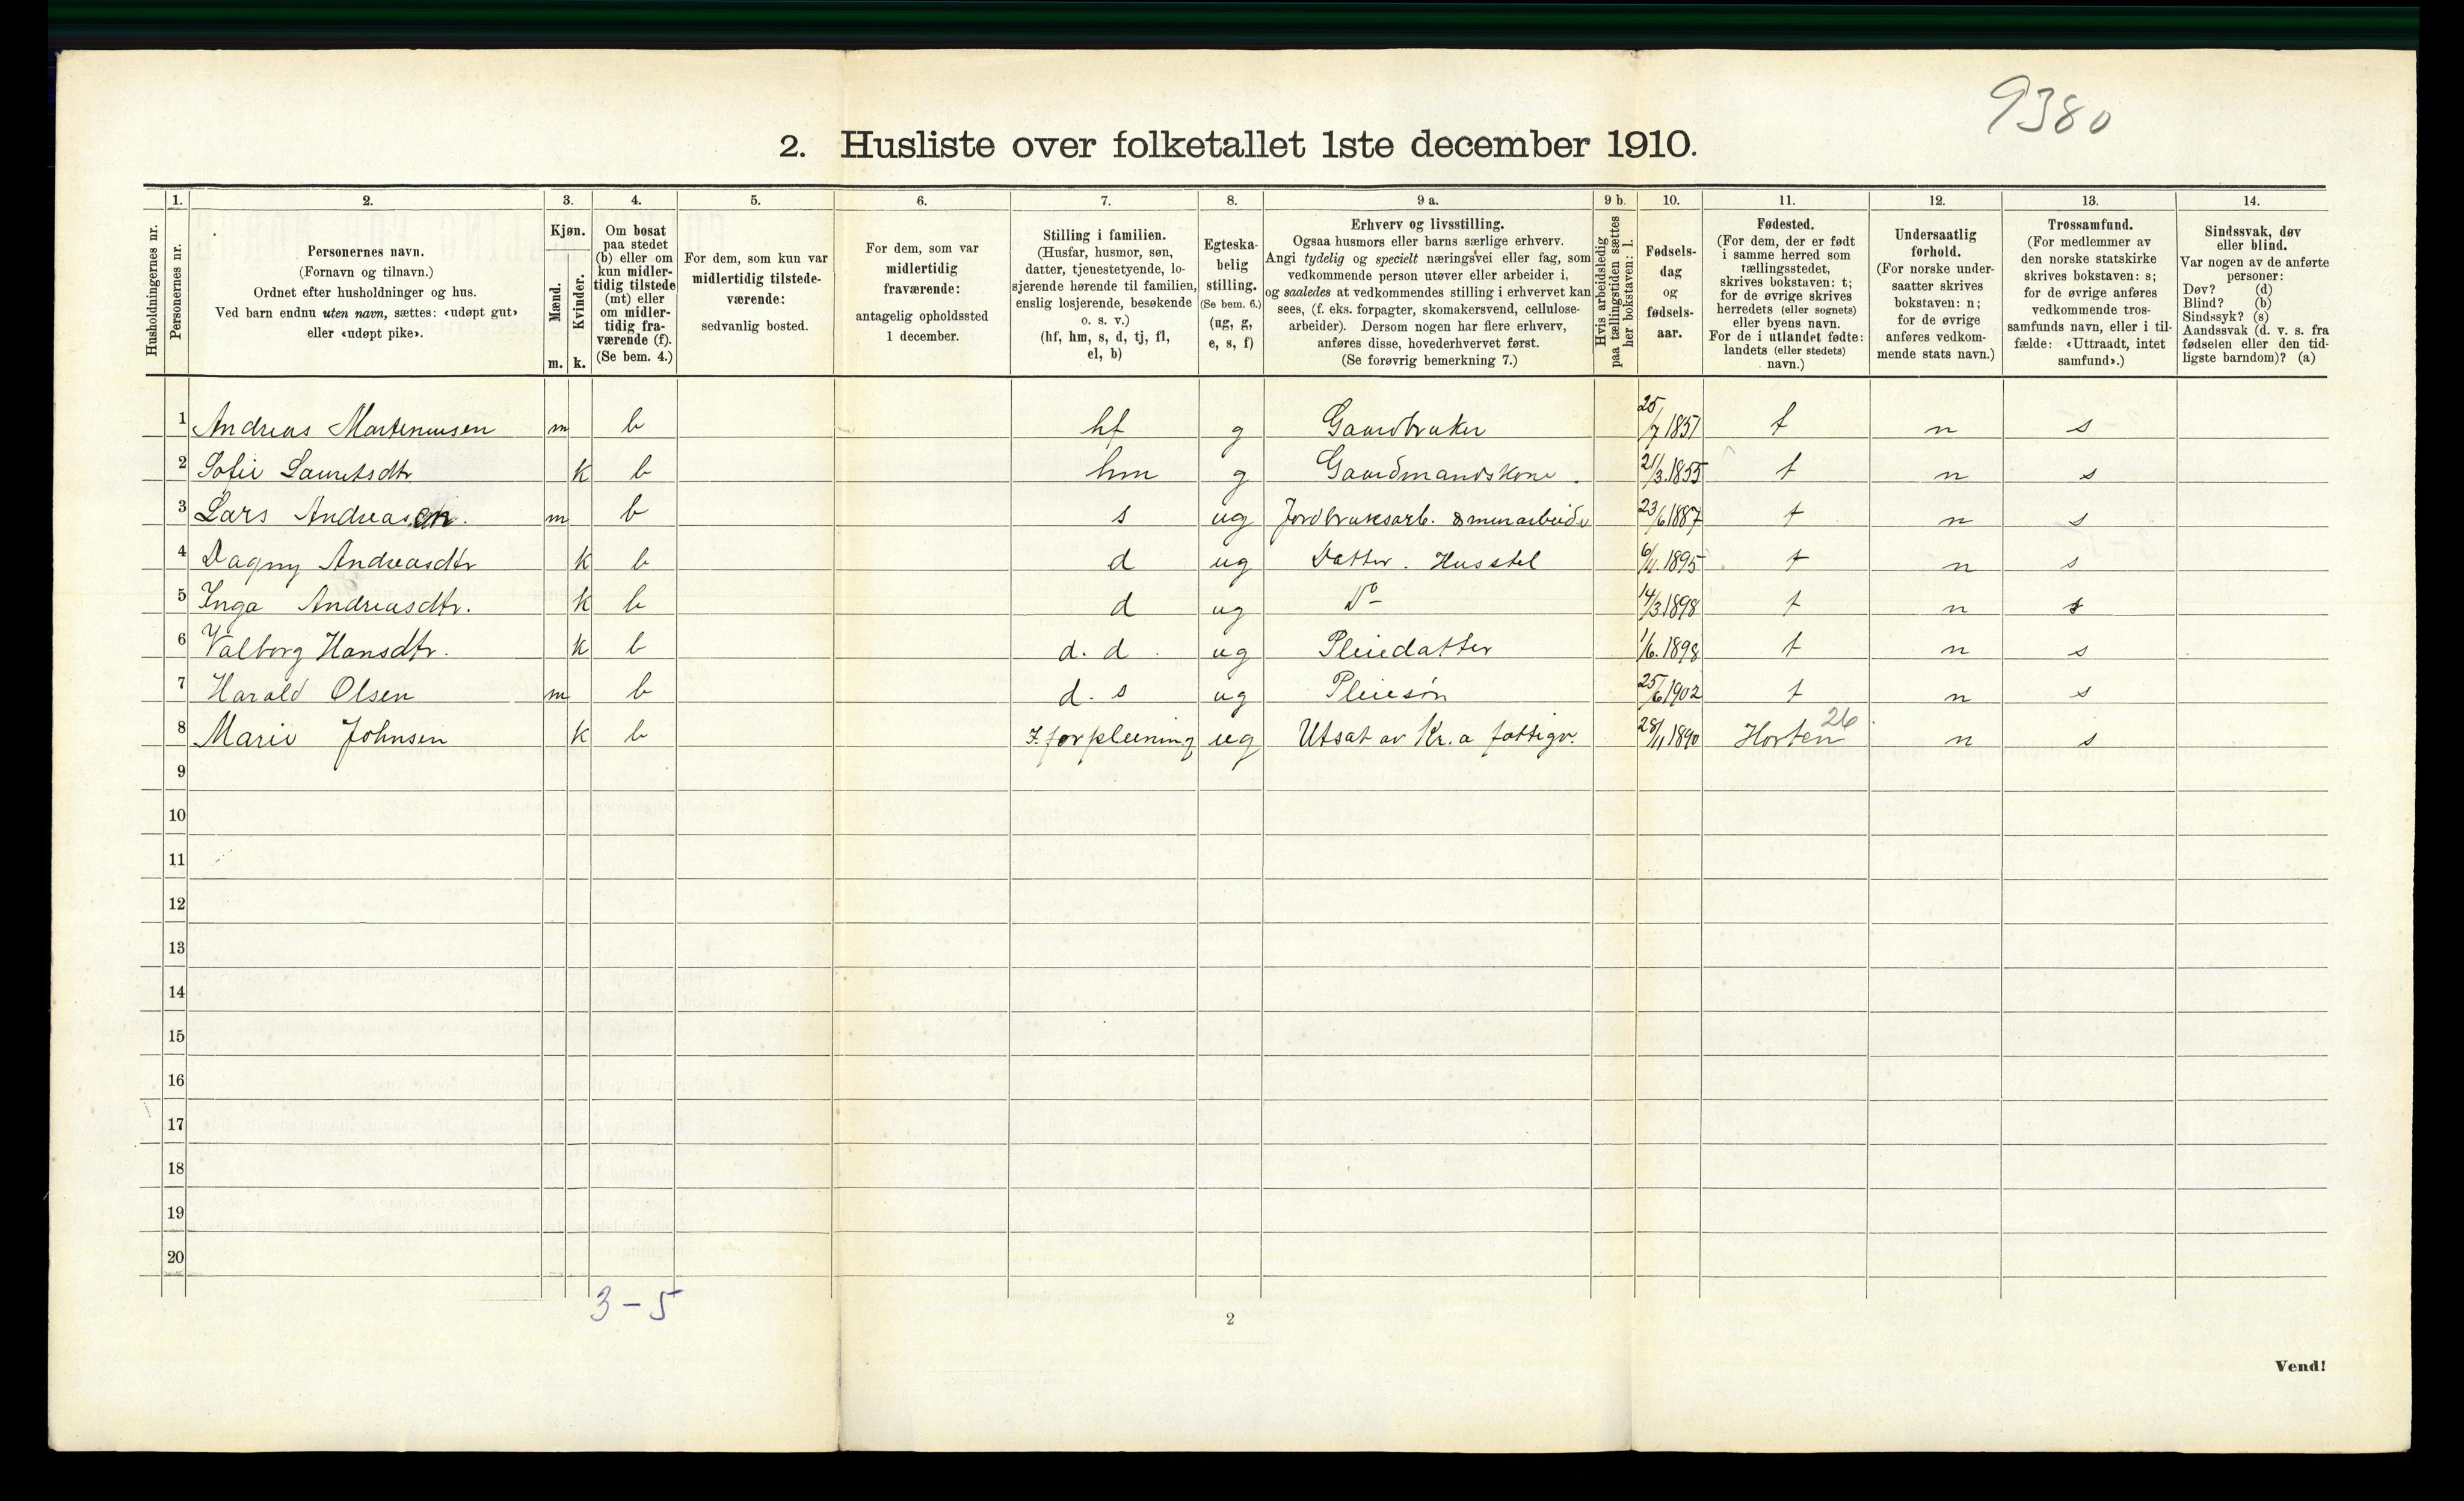 9380
2. Husliste over folketallet 1ste december 1910.
1. 2. 3. 4. 5. 6. 7. 8. 9 a. 9 b. 10. 11. 12. 13. 14.
Husholdningernes nr.
Personernes nr.
Personernes navn.
(Fornavn og tilnavn.)
Ordnet efter husholdninger og hus.
Ved barn endnu uten navn, sættes: «udøpt gut»
eller «udøpt pike».
Kjøn.
Mænd.
Kvinder.
m. k.
Om bosat
paa stedet
(b) eller om
kun midler-
tidig tilstede
(mt) eller
om midler-
tidig fra-
værende (f).
(Se bem. 4.)
For dem, som kun var
midlertidig tilstede-
værende:
sedvanlig bosted.
For dem, som var
midlertidig
fraværende:
antagelig opholdssted
1 december.
Stilling i familien.
(Husfar, husmor, søn,
datter, tjenestetyende, lo-
sjerende hørende til familien,
enslig losjerende, besøkende
o. s. v.)
(hf, hm, s, d, tj, fl,
el, b)
Egteska-
belig
stilling.
(Se bem. 6.)
(ug, g,
e, s, f)
Erhverv og livsstilling.
Ogsaa husmors eller barns særlige erhverv.
Angi tydelig og specielt næringsvei eller fag, som
vedkommende person utøver eller arbeider i,
og saaledes at vedkommendes stilling i erhvervet kan
sees, (f. eks. forpagter, skomakersvend, cellulose-
arbeider). Dersom nogen har flere erhverv,
anføres disse, hovederhvervet først.
(Se forøvrig bemerkning 7.)
Hvis arbeidsledig
paa tællingstiden sættes
her bokstaven: l.
Fødsels-
dag
og
fødsels-
aar.
Fødested.
(For dem, der er født
i samme herred som
tællingsstedet,
skrives bokstaven: t;
for de øvrige skrives
herredets (eller sognets)
eller byens navn.
For de i utlandet fødte:
landets (eller stedets)
navn.)
Undersaatlig
forhold.
(For norske under-
saatter skrives
bokstaven: n;
for de øvrige
anføres vedkom-
mende stats navn.)
Trossamfund.
(For medlemmer av
den norske statskirke
skrives bokstaven: s;
for de øvrige anføres
vedkommende tros-
samfunds navn, eller i til-
fælde: «Uttraadt, intet
samfund».)
Sindssvak, døv
eller blind.
Var nogen av de anførte
personer:
Døv? (d)
Blind? (b)
Sindssyk? (s)
Aandssvak (d. v. s. fra
fødselen eller den tid-
ligste barndom)? (a)
1 Andreas Martinusen m b hf g Gaardbruker 25/7 1851 t n s
2 Sofie Lauritsdtr k b hm g Gaardmandskone. 21/3.1855 t n s
3 Lars Andreasen. m b s ug Jordbruksarb. 23/6 1887 t n s
4 Dagny Andreasdtr k b d ug Datter. Husstel 6/11.1895 t n s
5 Inga Andreasdtr. k b d ug Do 14/3 1898 t n s
6 Valborg Hansdtr. k b d. d. ug Pleiedatter 1/6.1898 t n s
7 Harald Olsen m b d. s ug Pleiesøn 25/6 1902 t n s
8 Marie Johnsen k b I forpleining ug Utsat av Kr.a fattigv. 28/11 1890 Horten 26. n s
9
10
11
12
13
14
15
16
17
18
19
20
3 - 5
2
Vend!